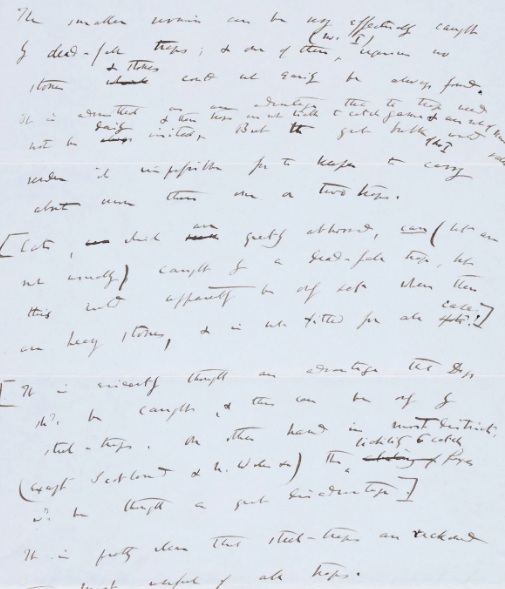 The smaller vermin can be very effectively caught
(W. I)
by dead-fall traps; & one of them, requires no
& stones
stones could not easily be always found.
It is admitted as an advantage that the traps need
not be daily visited, But the great bulk would
render it impossible for the keeper to carry
about more than one or two traps.
[Cats, which are greatly abhorred, can (but are
not usually) caught by a dead-fall trap, but
this would apparently be only safe where there
are heavy stones, & is not fitted for all
case.]
[It is evidently thought an advantage that Dogs
shd. be caught, & this can be only by
steel-traps. On other hand in most districts,
liability to catch
(except Scotland & N. Wales) the foxes
wd. be thought a great disadvantage]
It is pretty clear that steel-traps are reckoned
most useful of all traps.